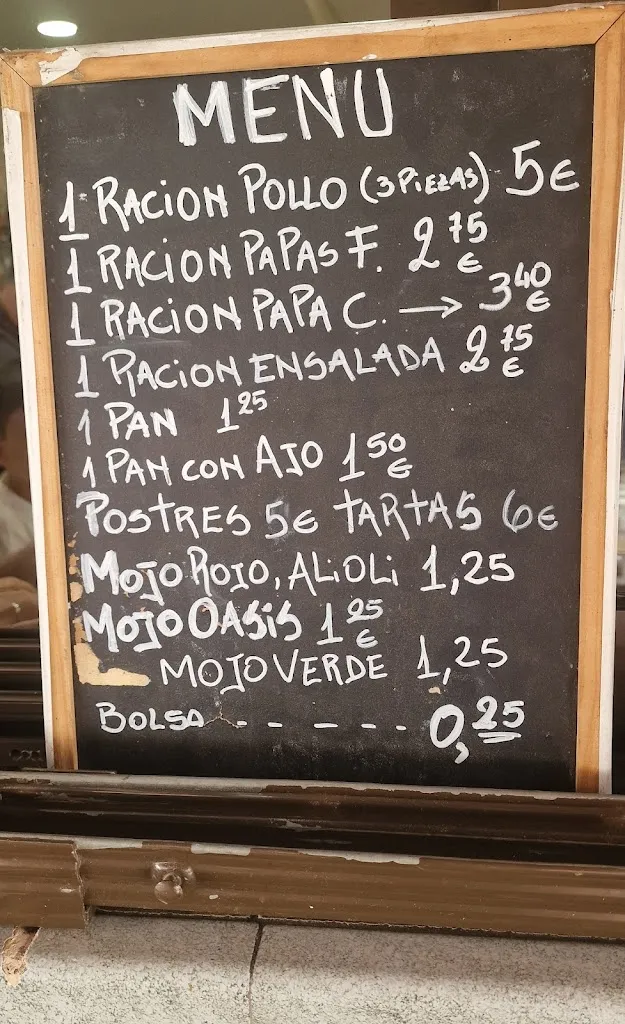 MENU
1 RACION POLLO (3 PIEZAS) 5€
1 RACION PAPAS F. 2 75 €
1 RACION PAPA C. → 3 40 €
1 RACION ENSALADA 2 75 €
1 PAN 1 25
1 PAN CON AJO 1 50 €
POSTRES 5€ TARTAS 6€
MOJO ROJO, ALIOLI 1,25
MOJO OASIS 1 25 €
MOJO VERDE 1,25
BOLSA - - - - - - 0,25